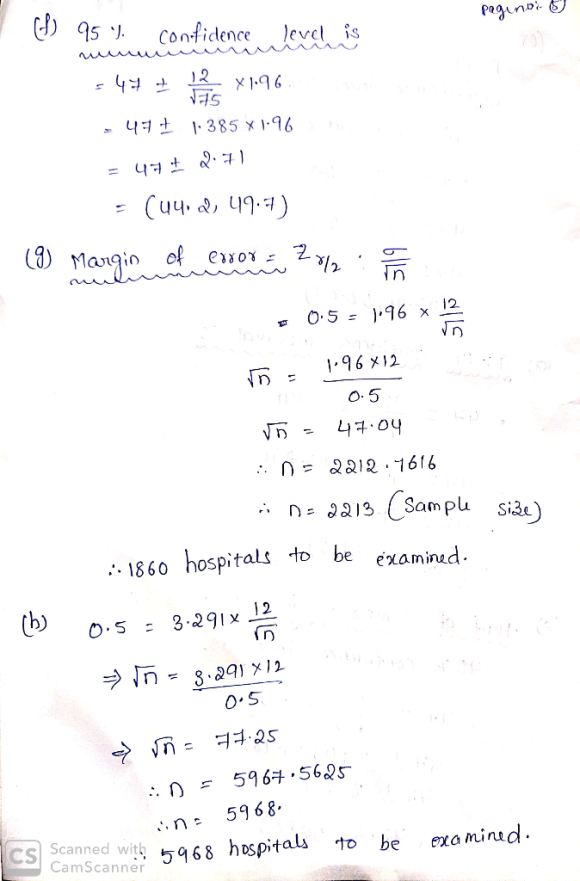 page no:- 5
(f) 95 %. confidence level is
= 47 ± 12/√75 × 1.96
= 47 ± 1.385 × 1.96
= 47 ± 2.71
= (44.2, 49.7)
(g) Margin of error = Z r/2 . σ/√n
= 0.5 = 1.96 × 12/√n
√n = 1.96 × 12 / 0.5
√n = 47.04
∴ n = 2212.7616
∴ n = 2213 (Sample size)
∴ 1860 hospitals to be examined.
(h) 0.5 = 3.291 × 12/√n
⇒ √n = 3.291 × 12 / 0.5
⇒ √n = 77.25
∴ n = 5967.5625
∴ n = 5968.
∴ 5968 hospitals to be examined.
CS Scanned with
CamScanner